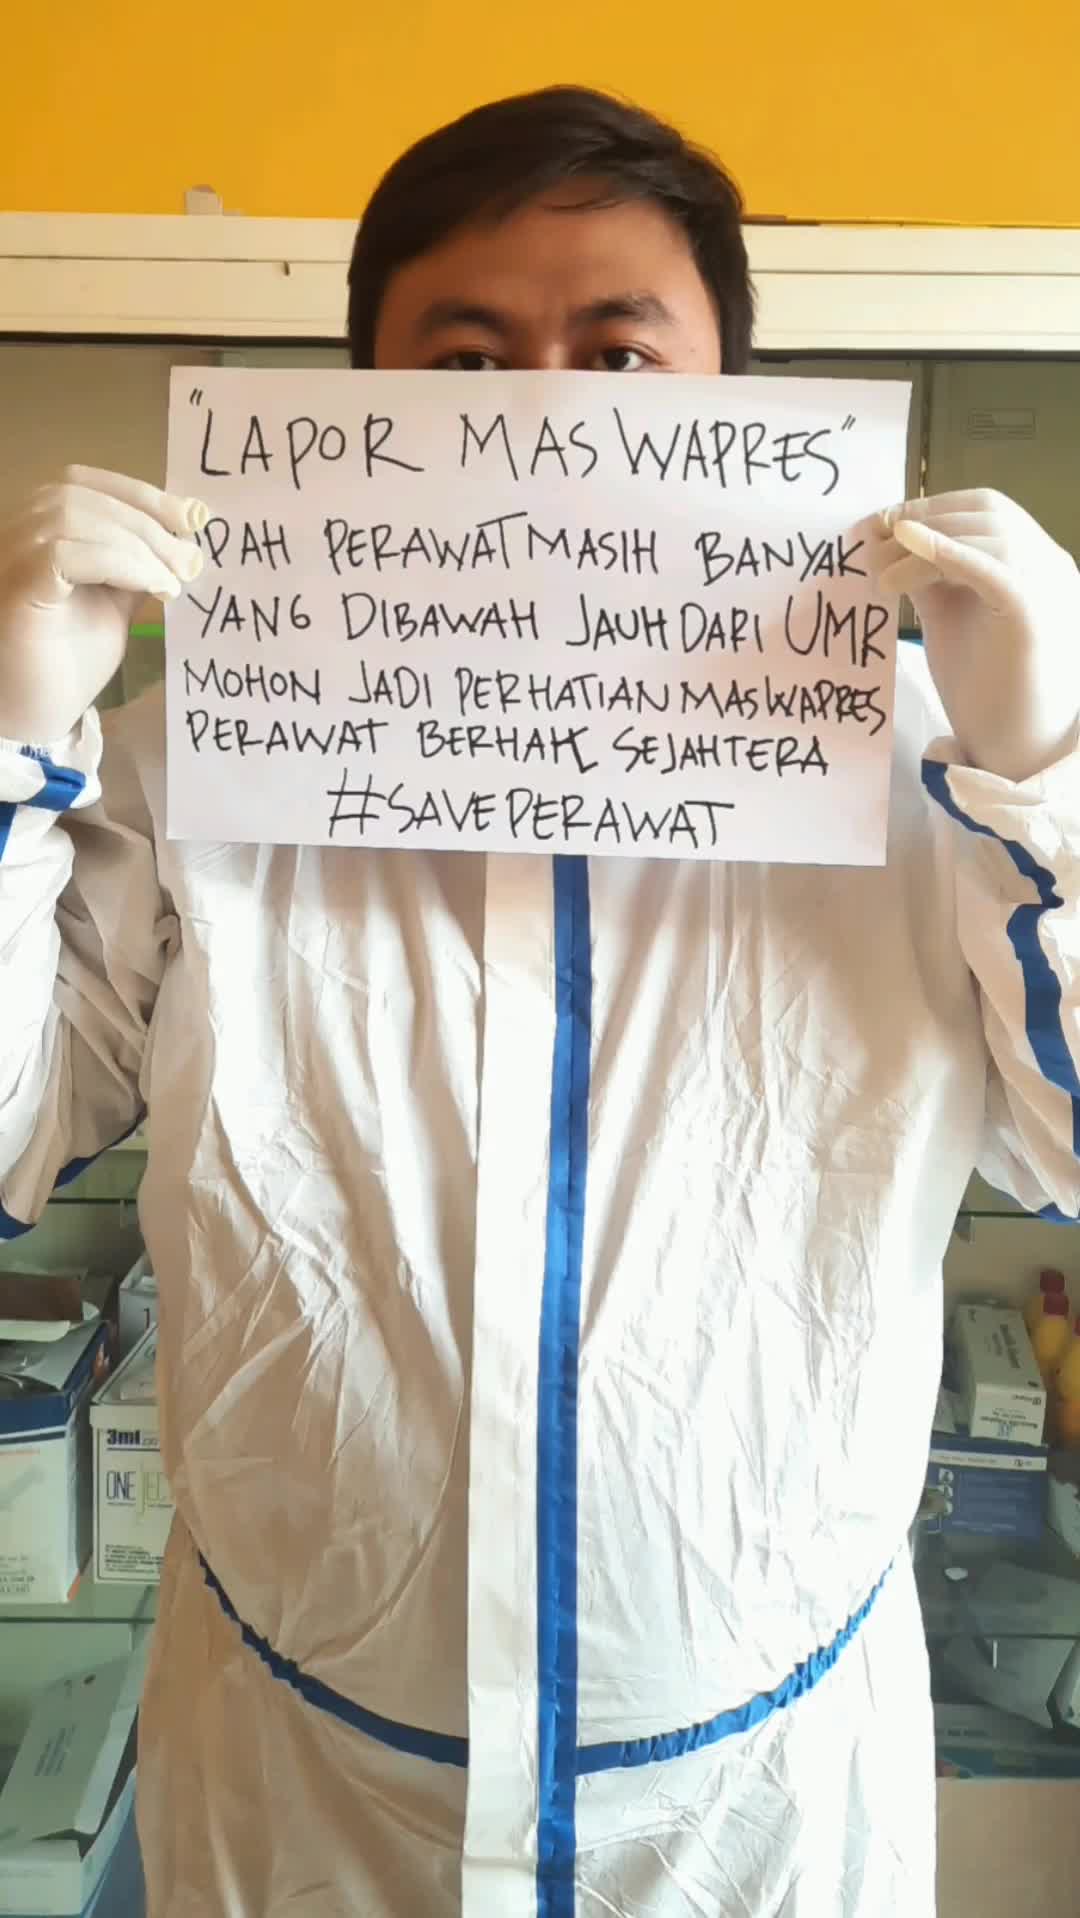 "LAPOR MAS WAPRES"
UPAH PERAWAT MASIH BANYAK
YANG DIBAWAH JAUH DARI UMR
MOHON JADI PERHATIAN MAS WAPRES
PERAWAT BERHAK SEJAHTERA
#SAVEPERAWAT
3ml
ONE JECT